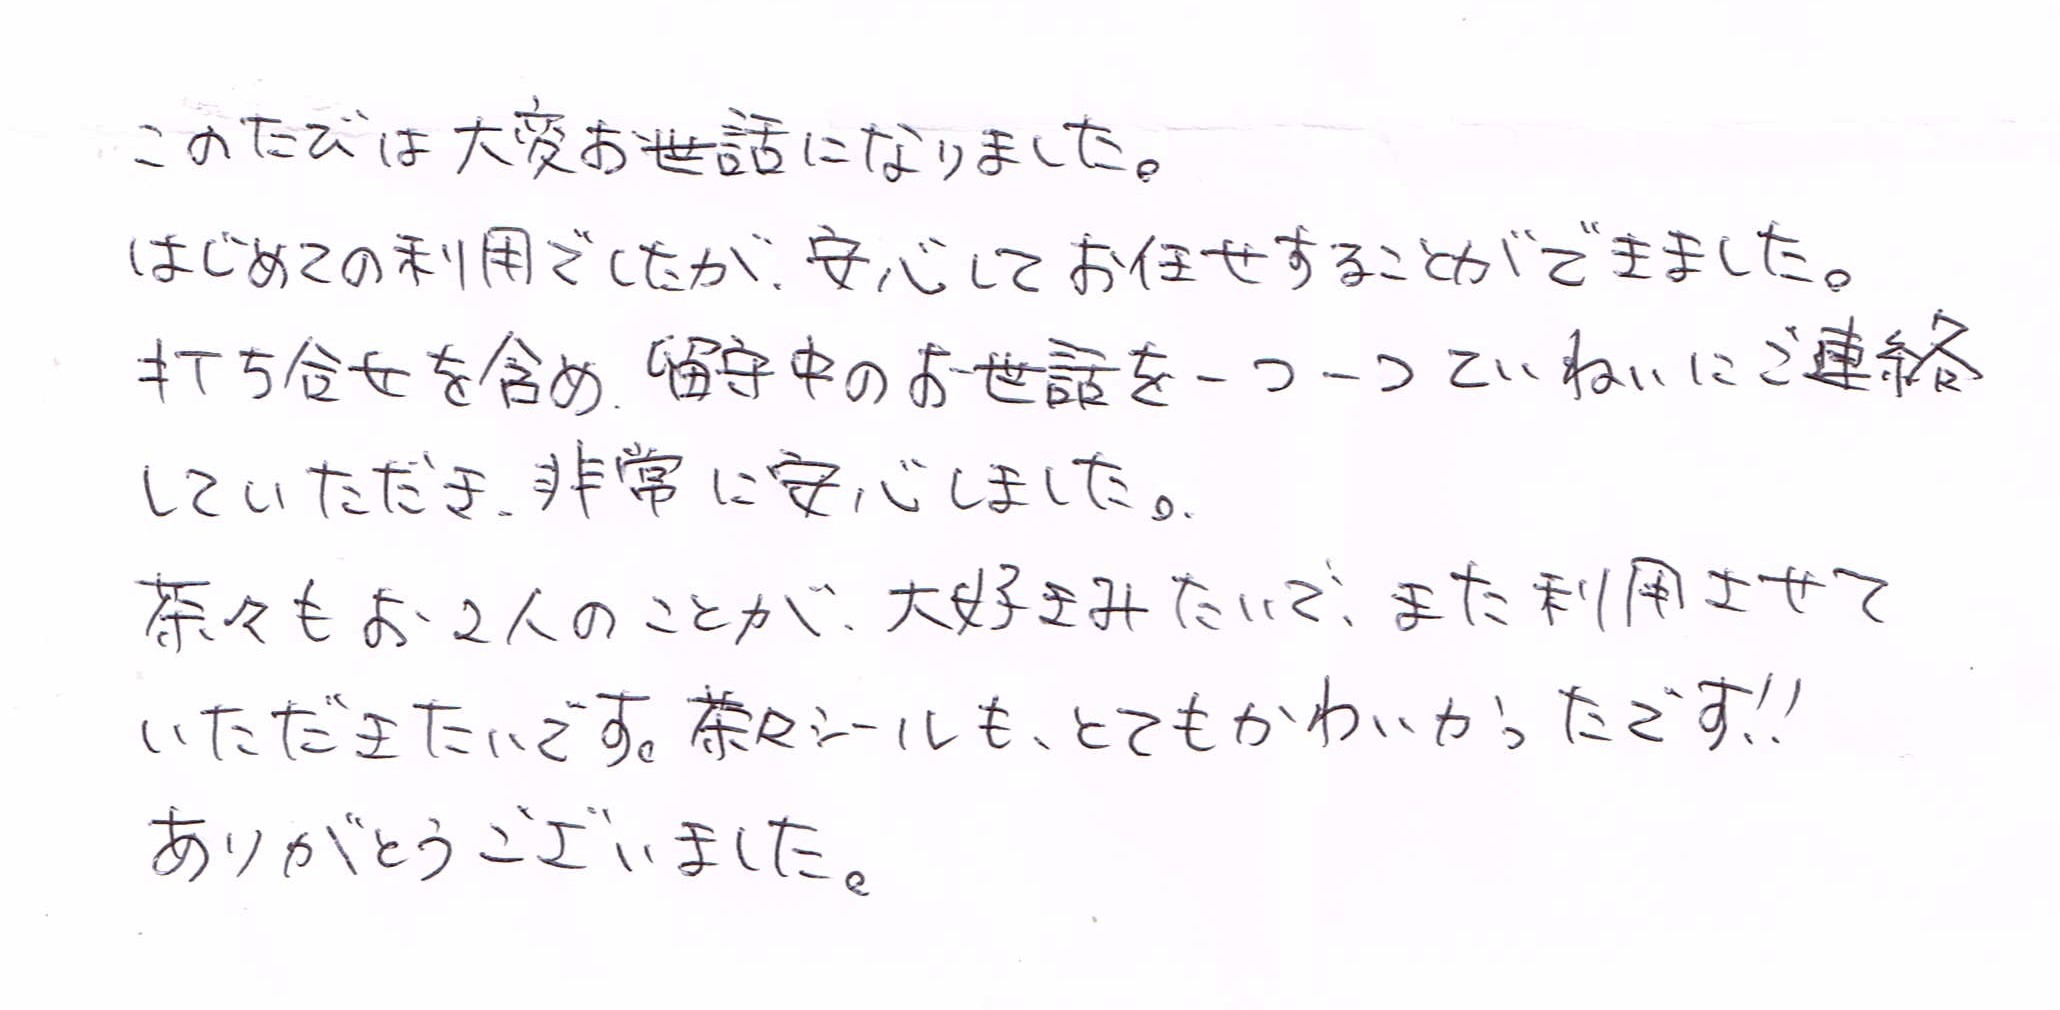 このたびは大変お世話になりました。
はじめての利用でしたが、安心してお任せすることができました。
打ち合せを含め、留守中のお世話を一つ一つていねいにご連絡
していただき、非常に安心しました。
茶々もお2人のことが、大好きみたいで、また利用させて
いただきたいです。茶々シールも、とてもかわいかったです!!
ありがとうございました。